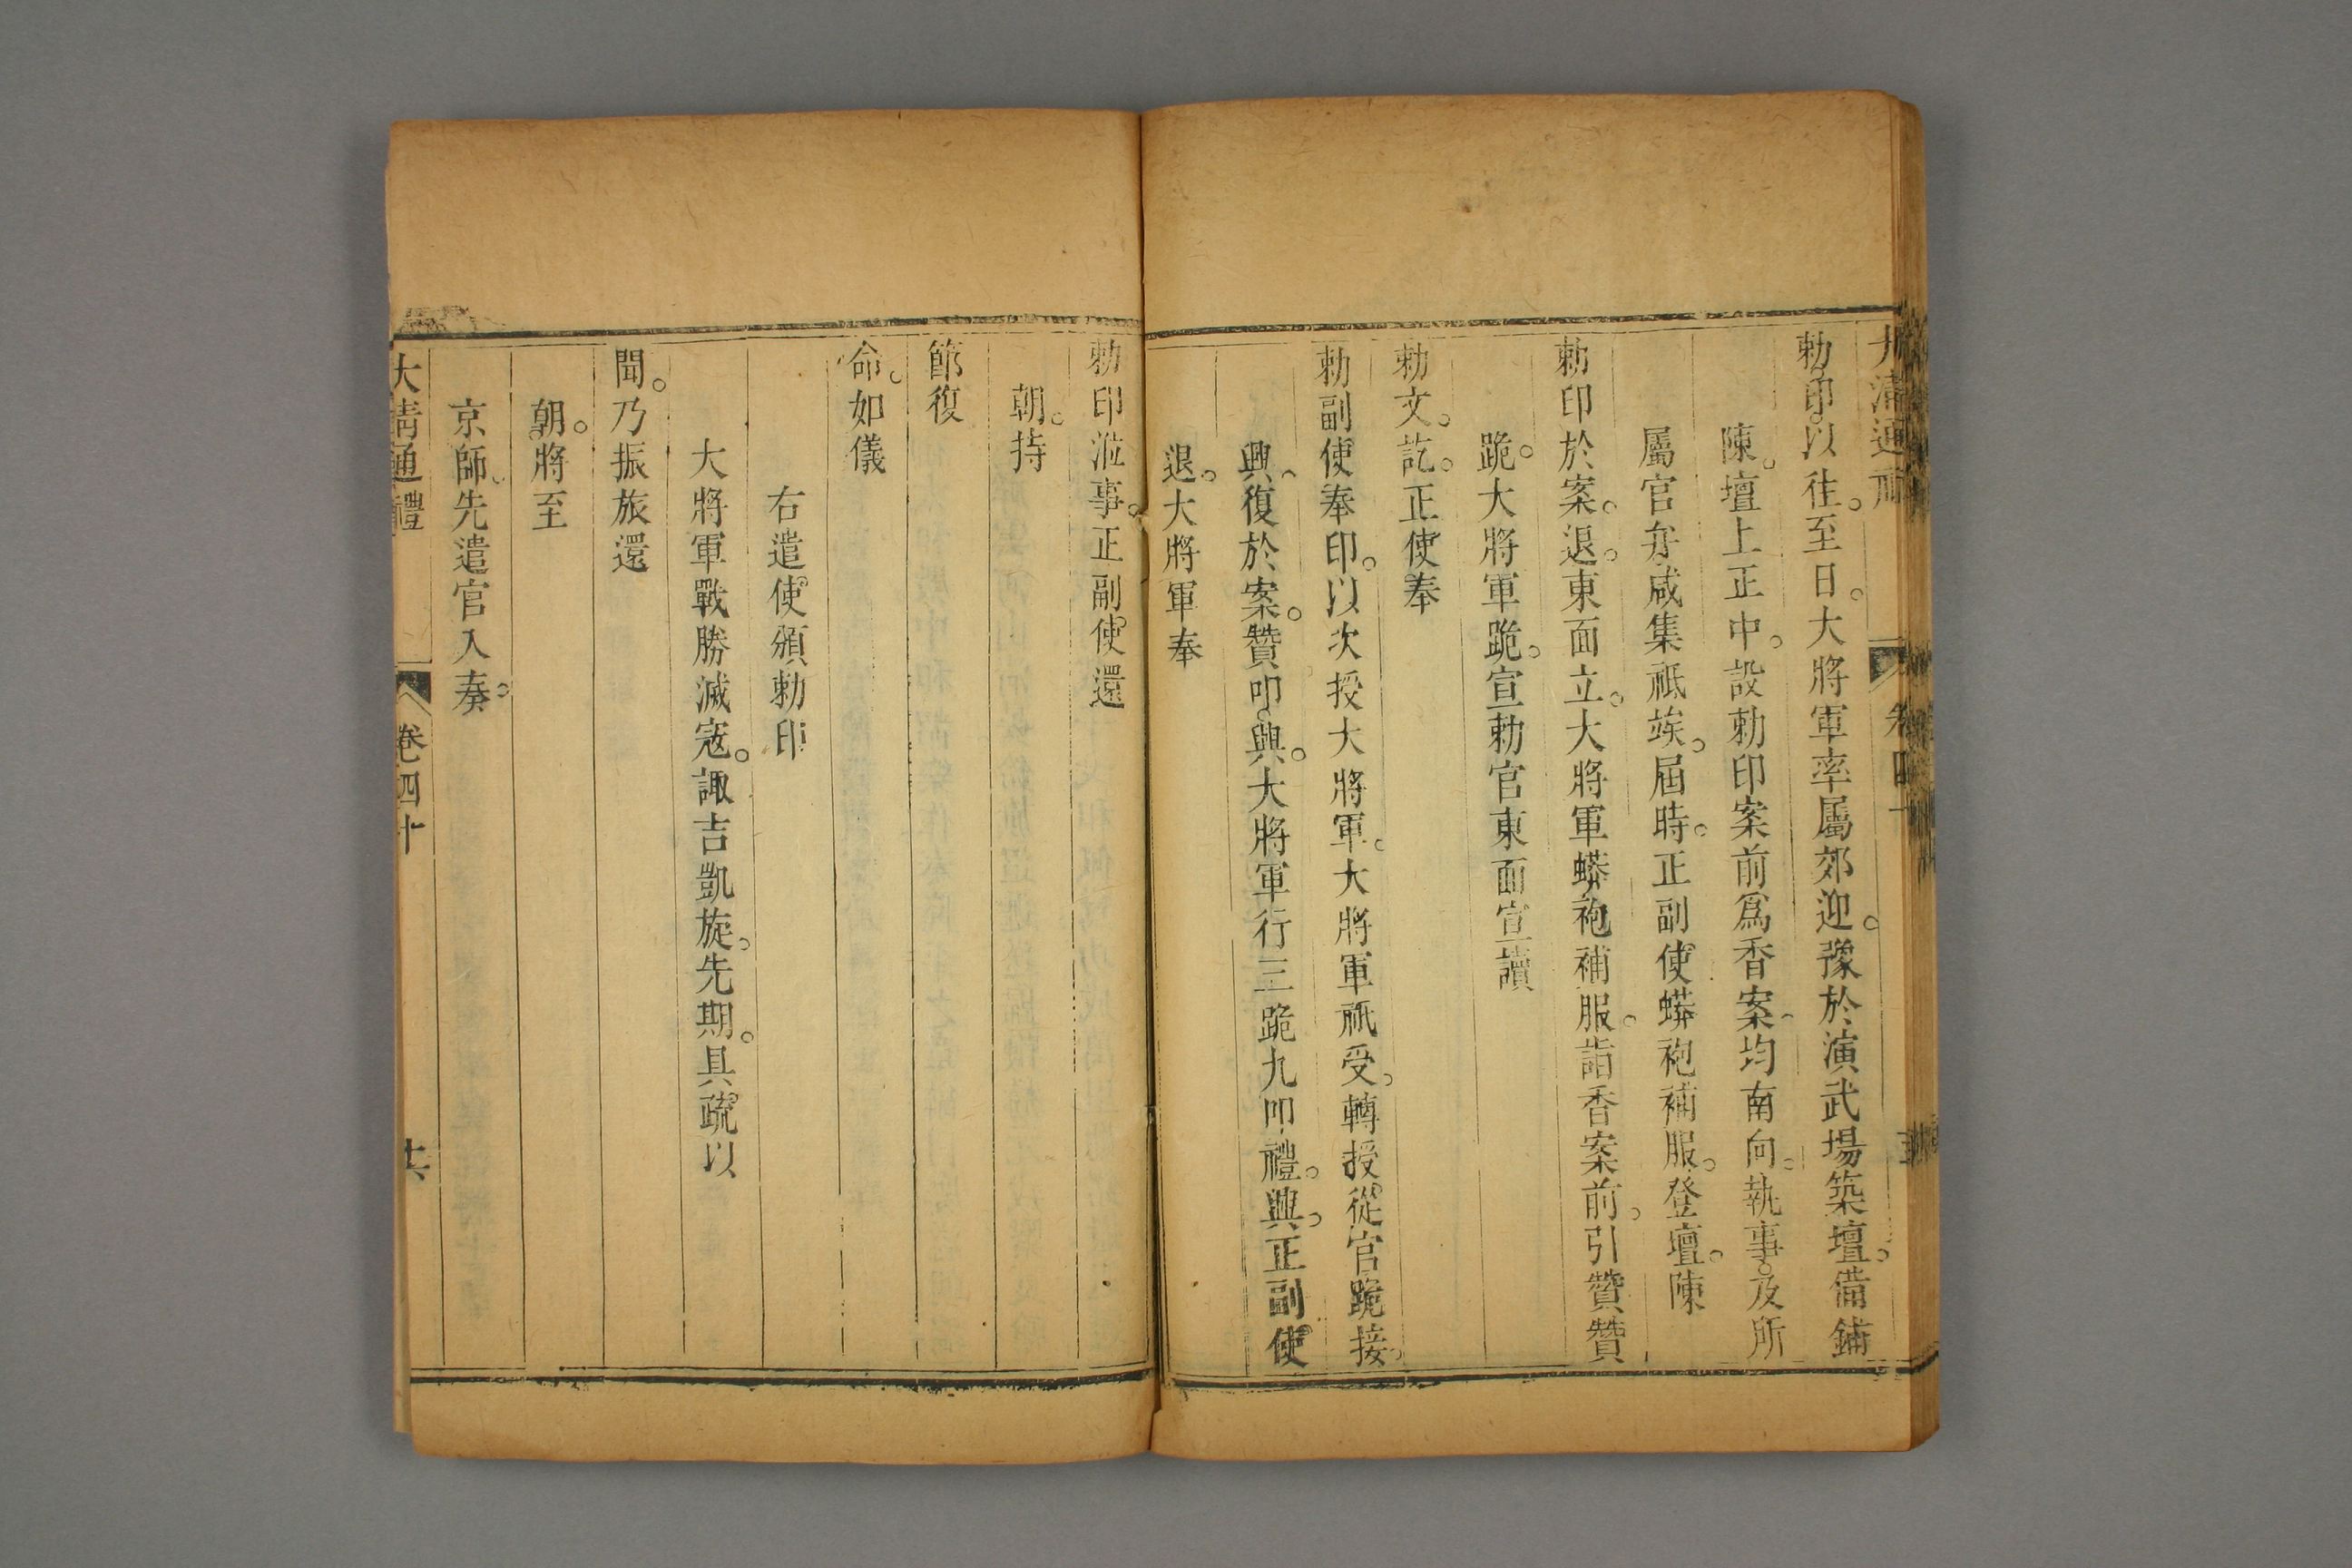 大清通禮 卷四十
勅印。以往。至日。大將軍率屬郊迎。豫於演武場築壇。備鋪
陳。壇上正中。設勅印案前爲香案。均南向。執事。及所
屬官弁咸集祇竢。屆時。正副使蟒袍補服。登壇。陳
勅印於案。退。東面立。大將軍蟒袍補服。詣香案前。引贊贊
跪。大將軍跪。宣勅官東面宣讀
勅文。訖。正使奉
勅副使奉印。以次授大將軍。大將軍祇受。轉授從官跪接。
興。復於案。贊叩。興。大將軍行三跪九叩禮。興。正副使
退。大將軍奉
勅印涖事。正副使還
朝。持
節復
命。如儀
右遣使頒勅印
大將軍戰勝滅寇。諏吉凱旋。先期。具疏以
聞。乃振旅還
朝。將至
京師。先遣官入奏。
大清通禮 卷四十 十六